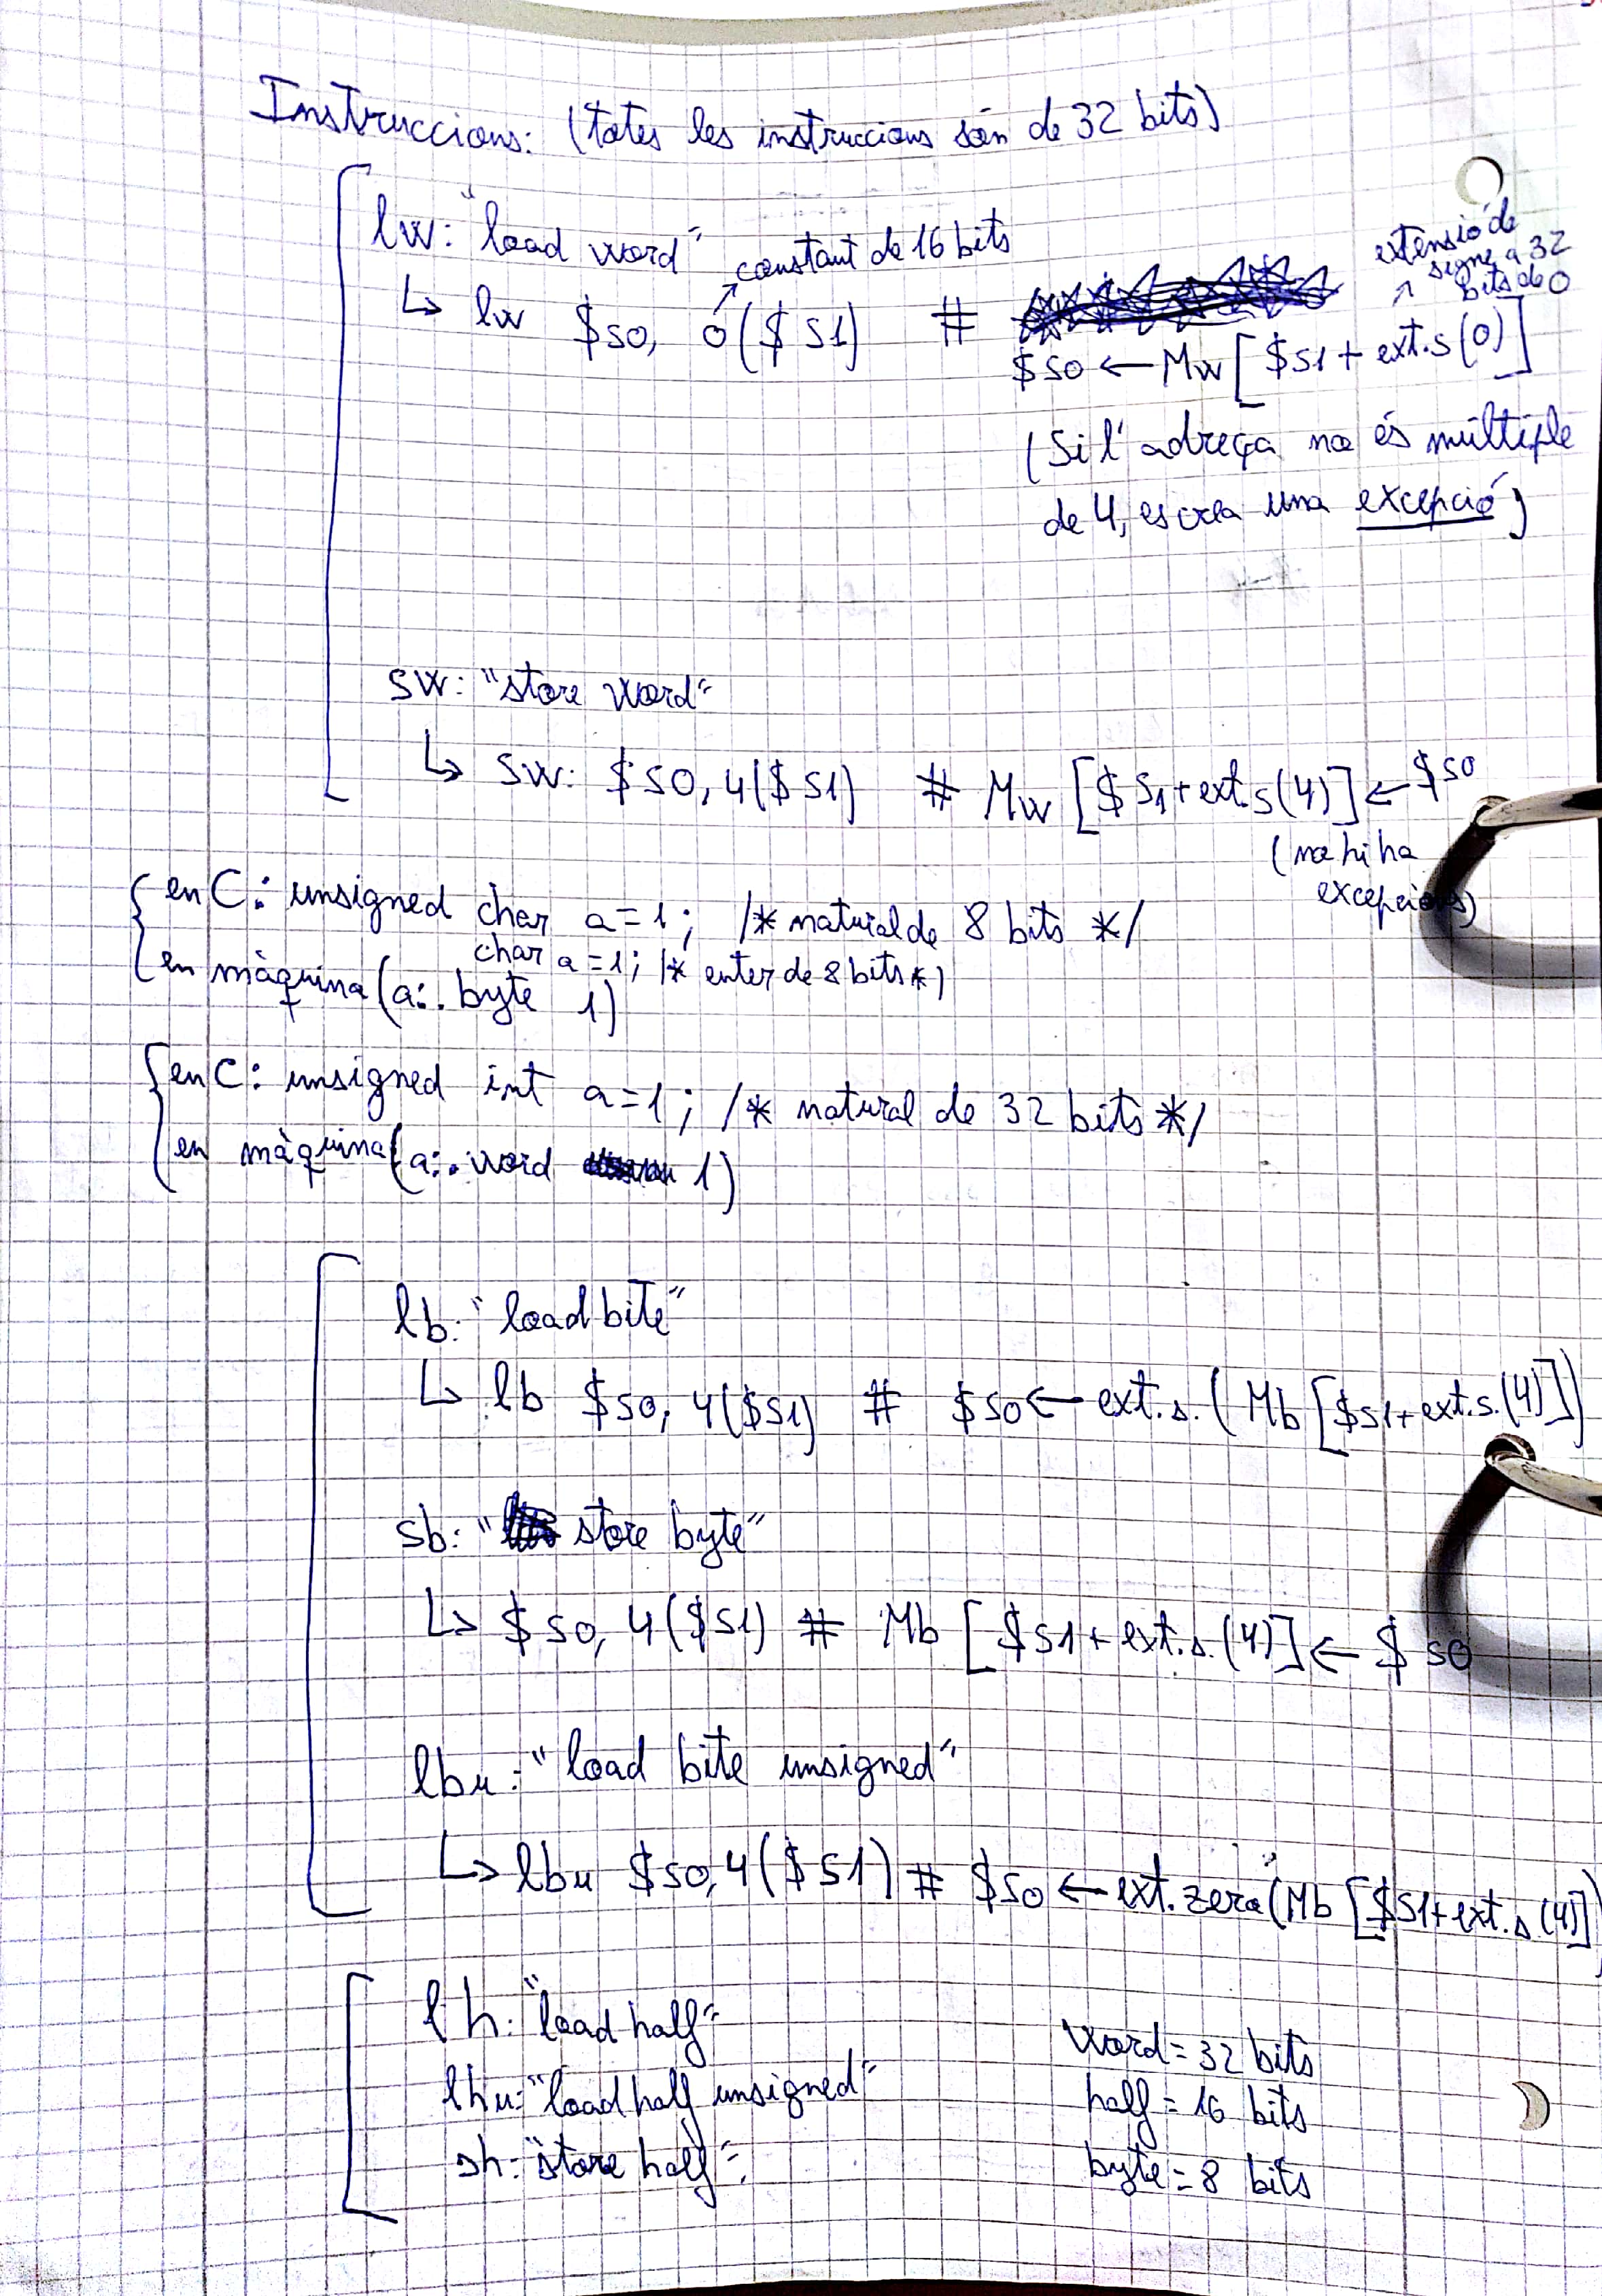 Instruccions: (totes les instruccions són de 32 bits)
lw: "load word"
constant de 16 bits
extensió de
signe a 32
bits de 0
↳ lw $s0, 0($s1) #
$s0 ← Mw[$s1 + ext.s(0)]
(Si l'adreça no és múltiple
de 4, es crea una excepció)
sw: "store word"
↳ sw: $s0, 4($s1) # Mw[$s1 + ext.s(4)] ← $s0
(no hi ha
excepcions)
en C: unsigned char a=1; /* natural de 8 bits */
char a=1; /* enter de 8 bits */
en màquina (a: .byte 1)
en C: unsigned int a=1; /* natural de 32 bits */
en màquina (a: .word 1)
lb: "load bite"
↳ lb $s0, 4($s1) # $s0 ← ext.s.(Mb[$s1+ext.s.(4)])
sb: "store byte"
↳ $s0, 4($s1) # Mb[$s1+ext.s.(4)] ← $s0
lbu: "load bite unsigned"
↳ lbu $s0, 4($s1) # $s0 ← ext.zero(Mb[$s1+ext.s.(4)])
lh: "load half"
lhu: "load half unsigned"
sh: "store half"
Word = 32 bits
half = 16 bits
byte = 8 bits